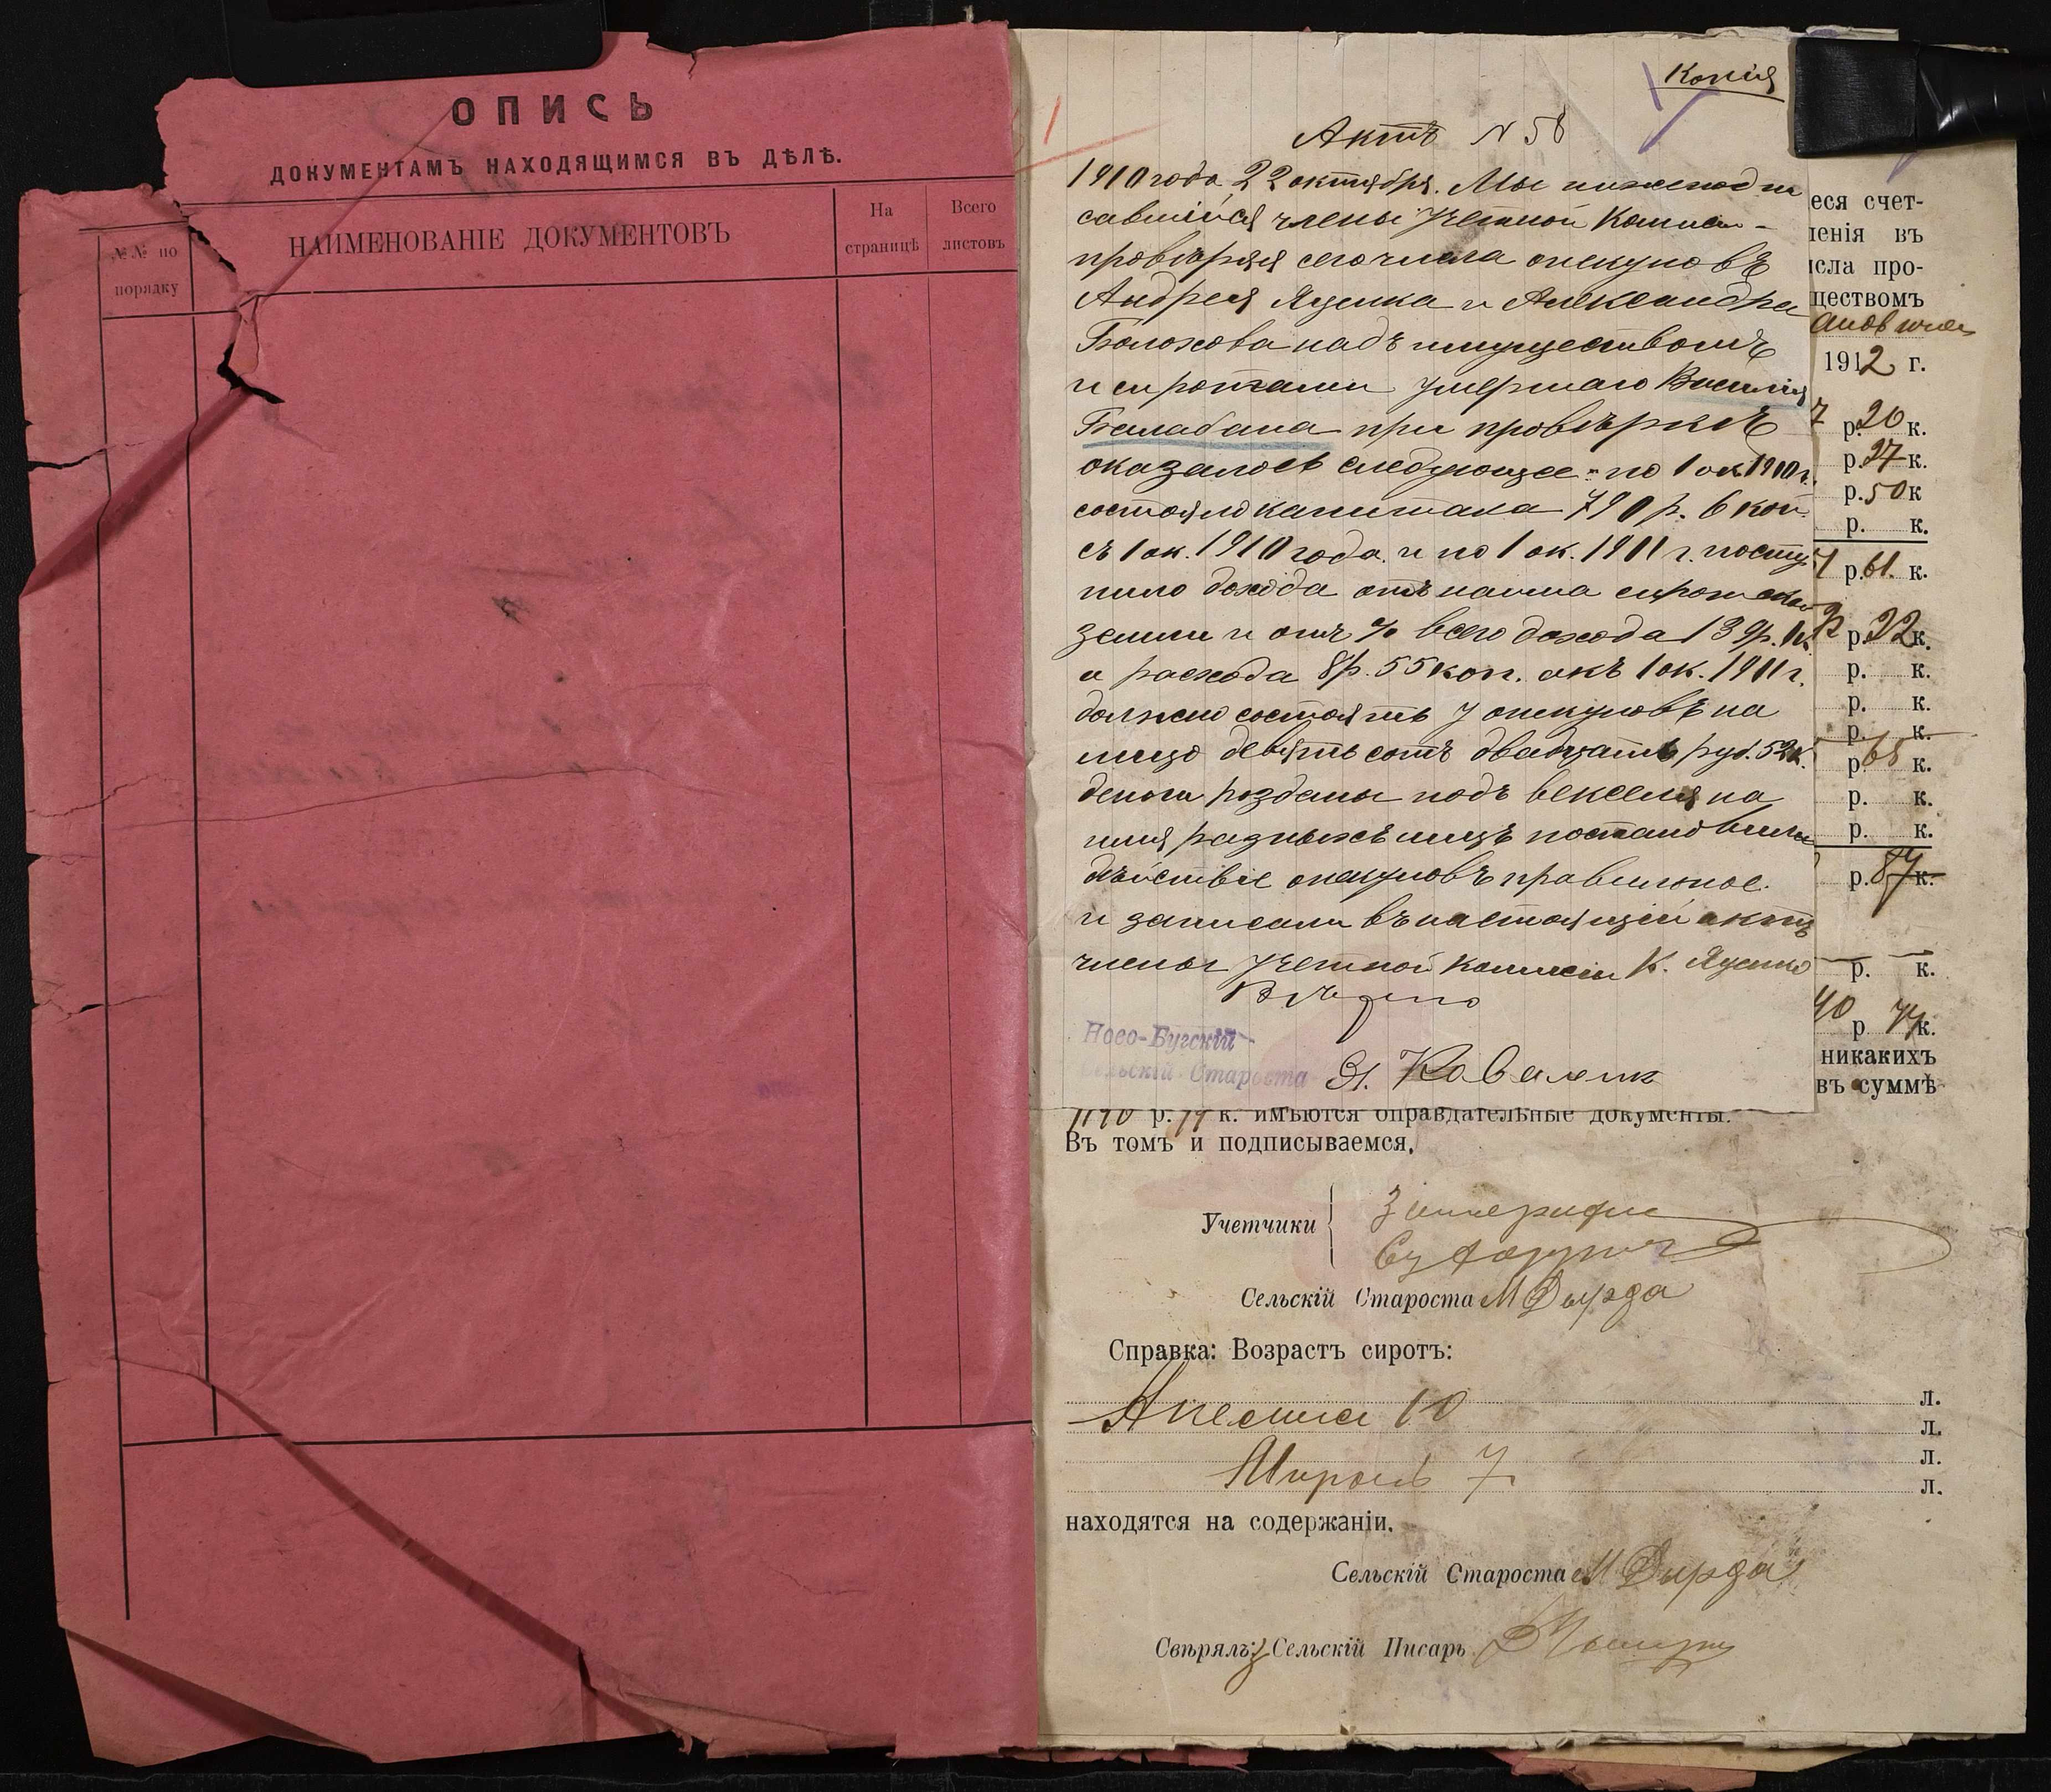 ОПИСЬ
ДОКУМЕНТАМЪ НАХОДЯЩИМСЯ ВЪ ДѢЛѢ.
№№ по порядку
НАИМЕНОВАНІЕ ДОКУМЕНТОВЪ
На страницѣ
Всего листовъ
Копія
Актъ N 58
1910 года 22 октября. Мы нижеподпи
савшійся члены Учетной Комисіи
провѣряя сего числа опекуновъ
Андрея Яценка и Александра
Болохова надъ имуществомъ
и сиротами умершаго Василія
Балабана при провѣркѣ
оказалось следующее: по 1 ок 1910 г.
состояло капитала 790 р. 6 коп.
съ 1 ок. 1910 года и по 1 ок. 1911 г. посту
пило дохода отъ найма сиротской
земли и отъ % всего дохода 139 р.
а расхода 8 р. 55 коп. акъ 1 ок. 1911 г.
должно состоять у опекуновъ на
лицо девятьсотъ двадцать руб. 52 к.
деньги розданы подъ векселя на
имя разныхъ лицъ постановили
дѣйствіе опекуновъ правильное.
и записали въ настоящій актъ
члены Учетной комисіи К. Яценко
Ново-Бугскій
Сельскій Староста Я. Ковалик
еся счет-
ленія въ
исла про-
ществомъ
1912 г.
7 р. 20 к.
р. 27 к.
р. 50 к
р. к.
р. 61. к.
р. 22 к.
р. к.
р. к.
р. к.
р. 65 к.
р. к.
р. к.
р. 87 к.
р. к.
40 р 77 к.
никакихъ
въ суммѣ
р. к. имѣются оправдательные документы.
Въ томъ и подписываемся,
Учетчики
Сельскій Староста М Дырда
Справка: Возрастъ сиротъ:
10 л.
л.
Миронъ 7 л.
л.
находятся на содержаніи.
Сельскій Староста М Дырда
Свѣрялъ: Сельскій Писарь